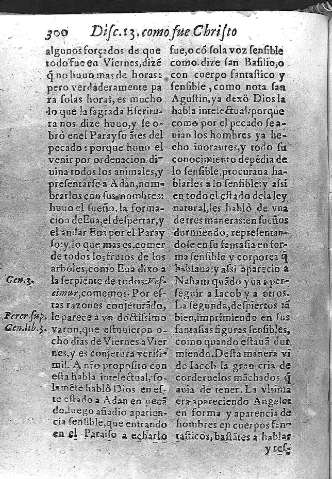 300 Disc. 13. como fue Christo
algunos forçados de que
todo fue en Viernes, dizé
q̃ no huuo mas de horas:
pero verdaderamente pa
ra solas horas, es mucho
do que la sagrada Escritu-
ra nos dize huuo, y se o-
bró en el Parayso ātes del
pecado: porque huuo el
venir por ordenacion di-
uina todos los animales, y
presentarse a Adan, nom-
brarlos con sus nombres:
huuo el sueño, la forma-
cion de Eua, el despertar, y
el andar Eua por el Paray
so: y lo que mas es, comer
de todos los frutos de los
arboles, como Eua dixo a
la serpiente de todos: Ves-
cimur, comemos. Por es-
tas razones conjeturado,
le parece a vn doctissimo
varon, que estuuieron o-
cho dias de Viernes a Vier
nes, y es conjetura verisi-
mil. A nro proposito con
esta habla intelectual, so-
lamēte habló Dios en es-
te estado a Adan en pecá
do, luego añadio aparien-
cia sensible, que entrando
en el Paraiso a echarlo
Gen. 3.
Perer. sup.
Gen. lib. 3.
fue, o có sola voz sensible
como dize san Basilio, o
con cuerpo fantastico y
sensible, como nota san
Agustin, ya dexó Dios la
habla intelectual: porque
como por el pecado se a-
uian los hombres ya he-
cho inorantes, y todo su
conocimiento depēdia de
lo sensible, procuraua ha-
blarles a lo sensible: y assi
en todo el estado de la ley
natural, les habló de vna
de tres maneras: en sueños
durmiendo, representan-
dose en su fantasia en for-
ma sensible y corporea q̃
hablaua: y assi aparecio a
Laban quādo yua a per-
seguir a Iacob y a otros.
La segunda, despiertos tā
bien, imprimiendo en sus
fantasias figuras sensibles,
como quando estauā dur-
miendo. Desta manera vi
do Iacob la gran cria
de corderuelos māchados q̃
auia de tener. La vltima
era apareciendo Angeles
en forma y apariencia de
hombres en cuerpos fan-
tasticos, bastātes a hablar
y res-